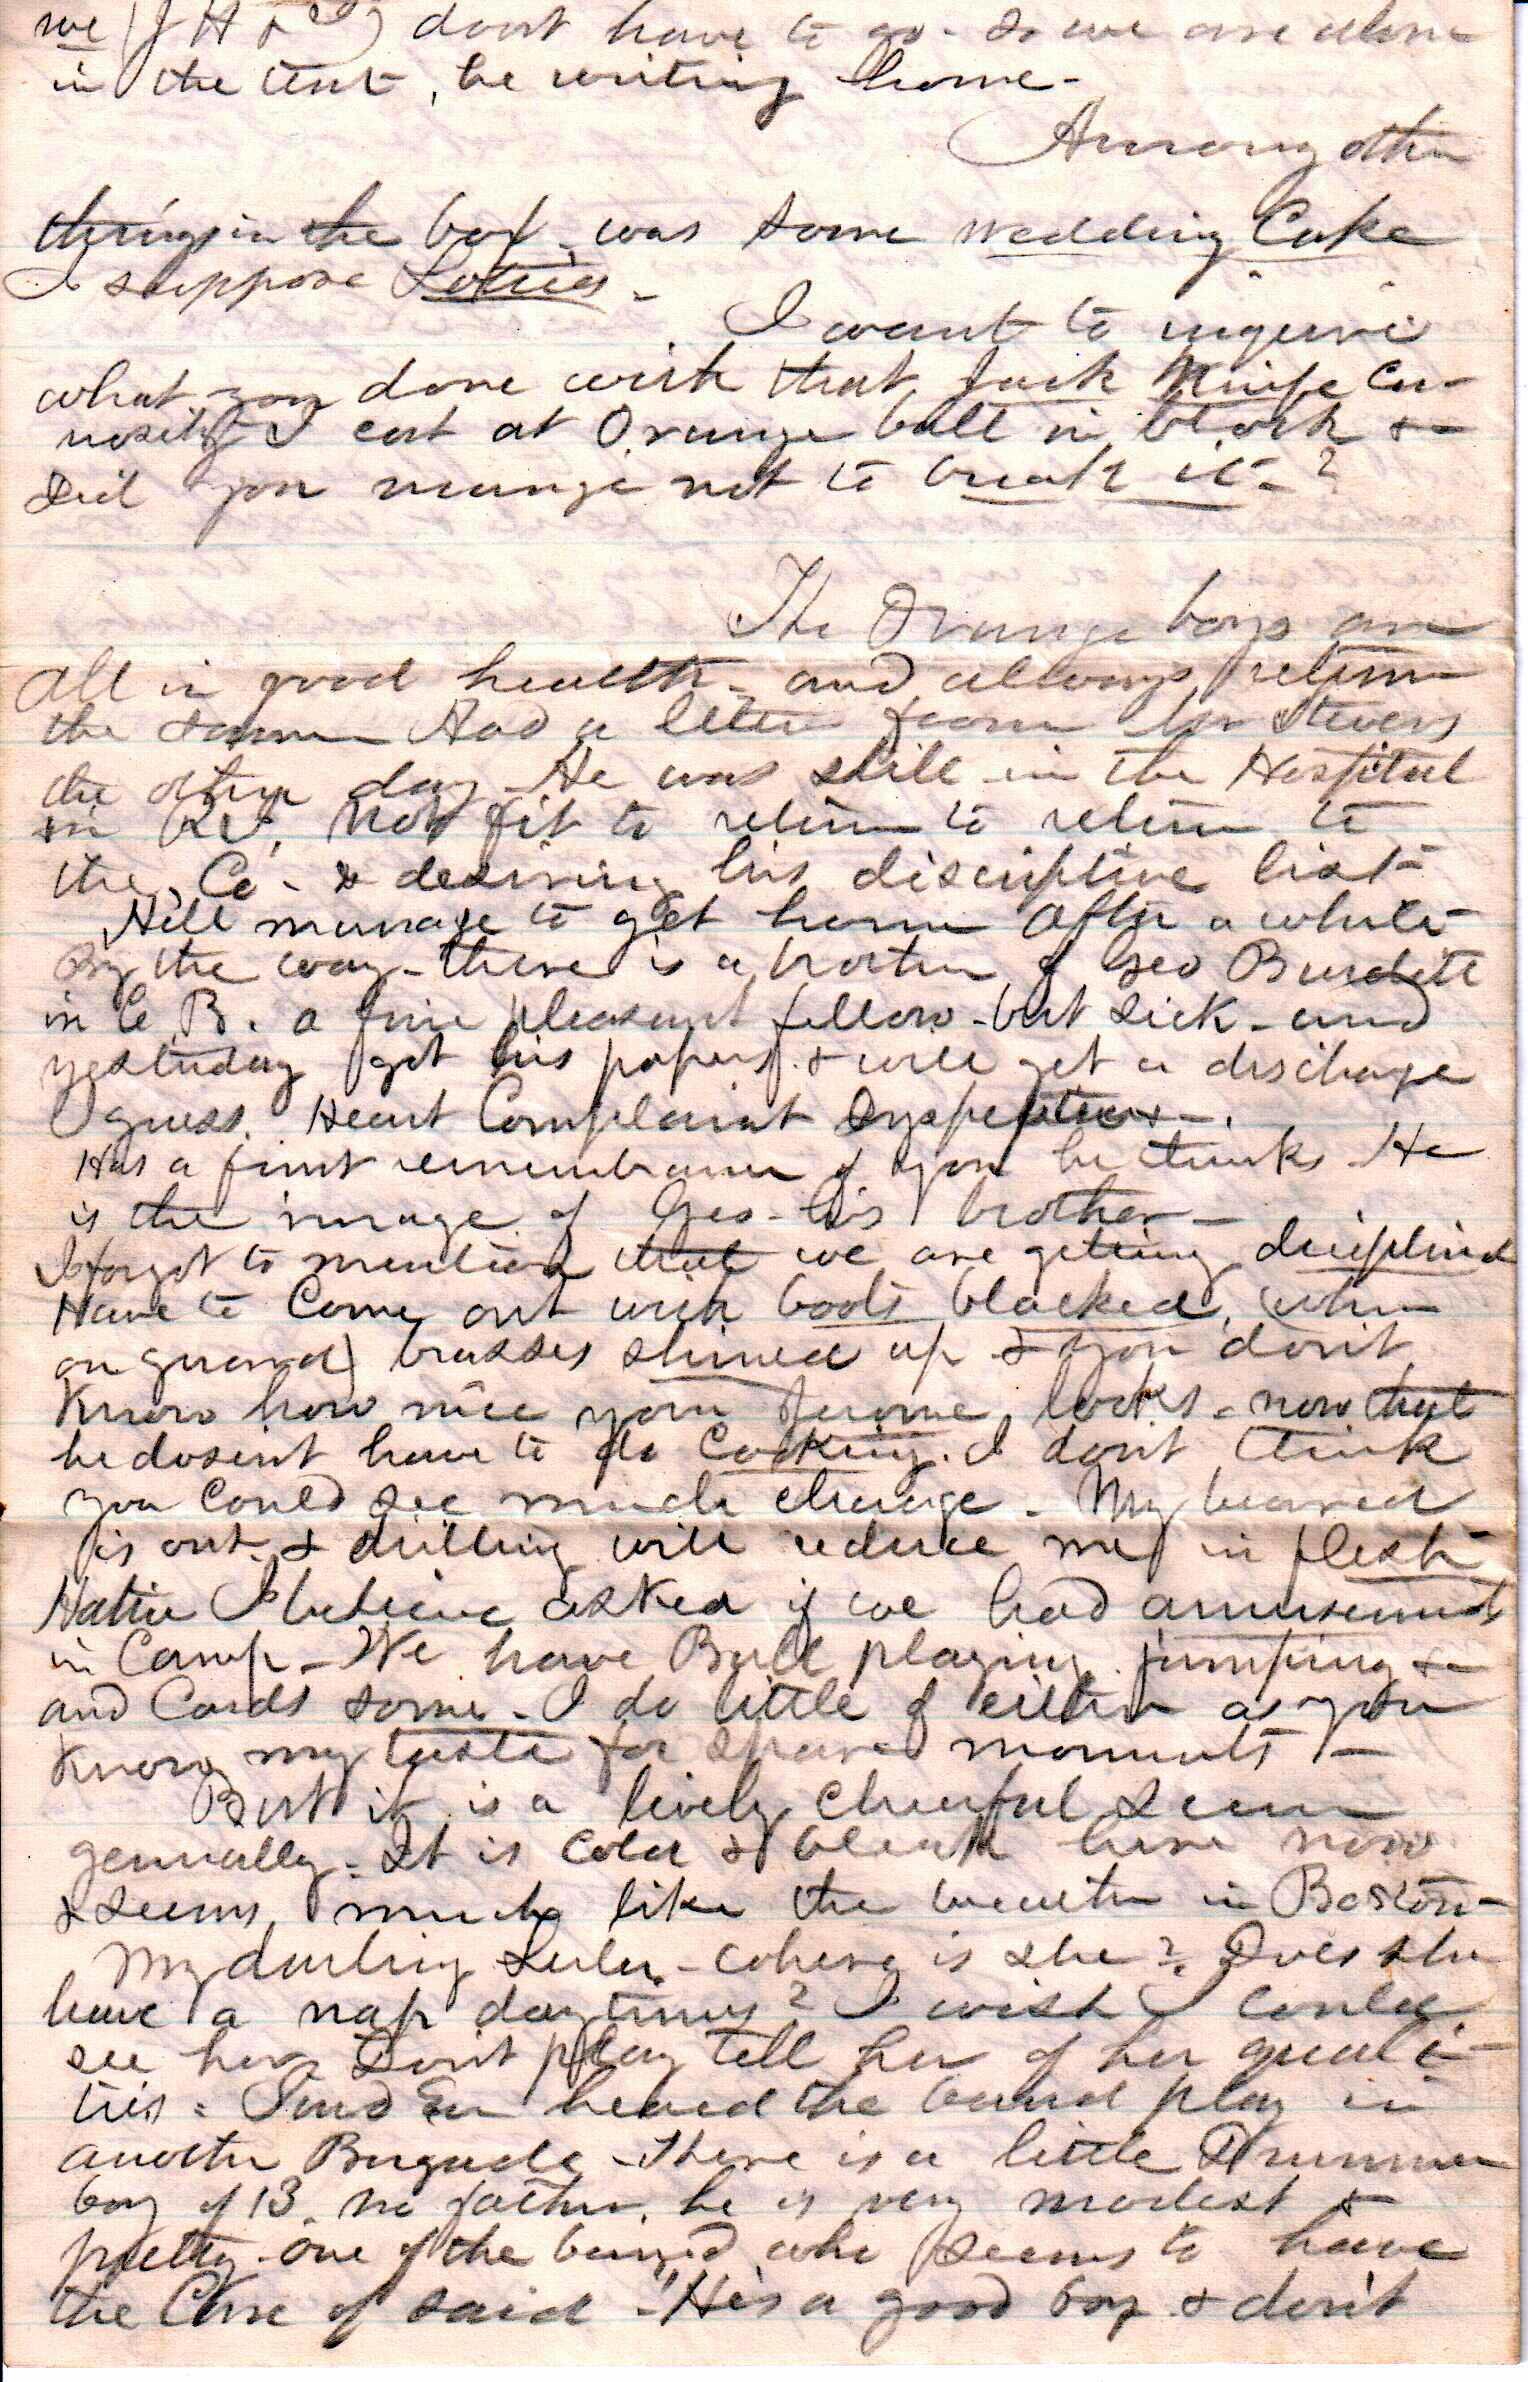 we (J H & I) dont have to go - so we are alone
in the tent, he writing home -
Among other
things in the box, was some wedding Cake
I suppose Lotties -
I want to inquire
what you done with that Jack Knife Cu-
riosity I cut at Orange ball in black &c
Did you manage not to break it - ?
The Orange boys are
all in good health - and always return
the same Had a letter from Stevens
the other day He was still in the Hospital
in not fit to return to return to
the Co - & desiring his discriptive list -
He'll manage to get home after a while -
By the way - there is a brother of Geo Burdett
in Co B. a fine pleasant fellow - but sick - and
yesterday got his papers & will get a discharge
I guess. Heart Complaint
Has a faint remembrance of you he thinks - He
is the image of Geo - his brother -
I forgot to mention that we are getting diciplind
Have to Come out with boots blacked, (when
on guard) brasses shined up & you don't
Know how nice your Jerome looks - now that
he dosent have to do Cooking. I dont think
you Could see much change - My beard
is out - & drilling will reduce me in flesh -
Hattie I believe asked if we had amusements
in Camp - We have Ball playing jumping &c
and Cards some - I do little of either as you
Know my taste for spare moments -
But it is a lively cheerful scene
genneally - It is cold & bleak here now
& seems much like the weather in Boston -
My darling Lulu - where is she? Does she
have a nap daytimes? I wish I could
see her Dont play tell her of her quali-
ties - heard the band play in
another Brigade - there is a little Drummer
boy of 13. no father, he is very modest &
pretty - one of the band who seems to have
the Care of said - "He's a good boy & don't